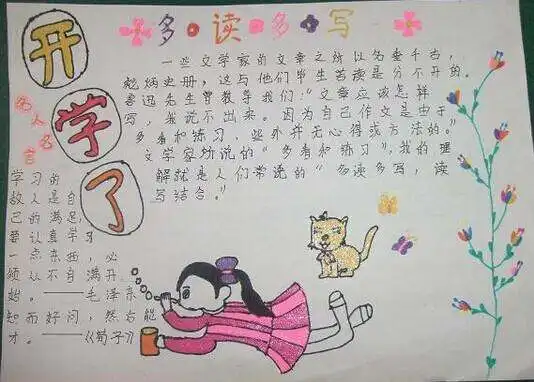 开
学
了
多读多写
一些文学家的文章之所以名垂千古,
彪炳史册,这与他们毕生苦读是分不开的。
鲁迅先生曾教导我们:“文章应该怎样
写,我说不出来。因为自己作文是由于
多看和练习,此外并无心得或方法的。”
文学家所说的“多看和练习”,我的理
解就是人们常说的“多读多写,读
写结合。”
名人名言
学习的
敌人是自
己的满足,
要认真学习
一点东西,必
须从不自满开
始。——毛泽东
知而好问,然后能
才。——《荀子》